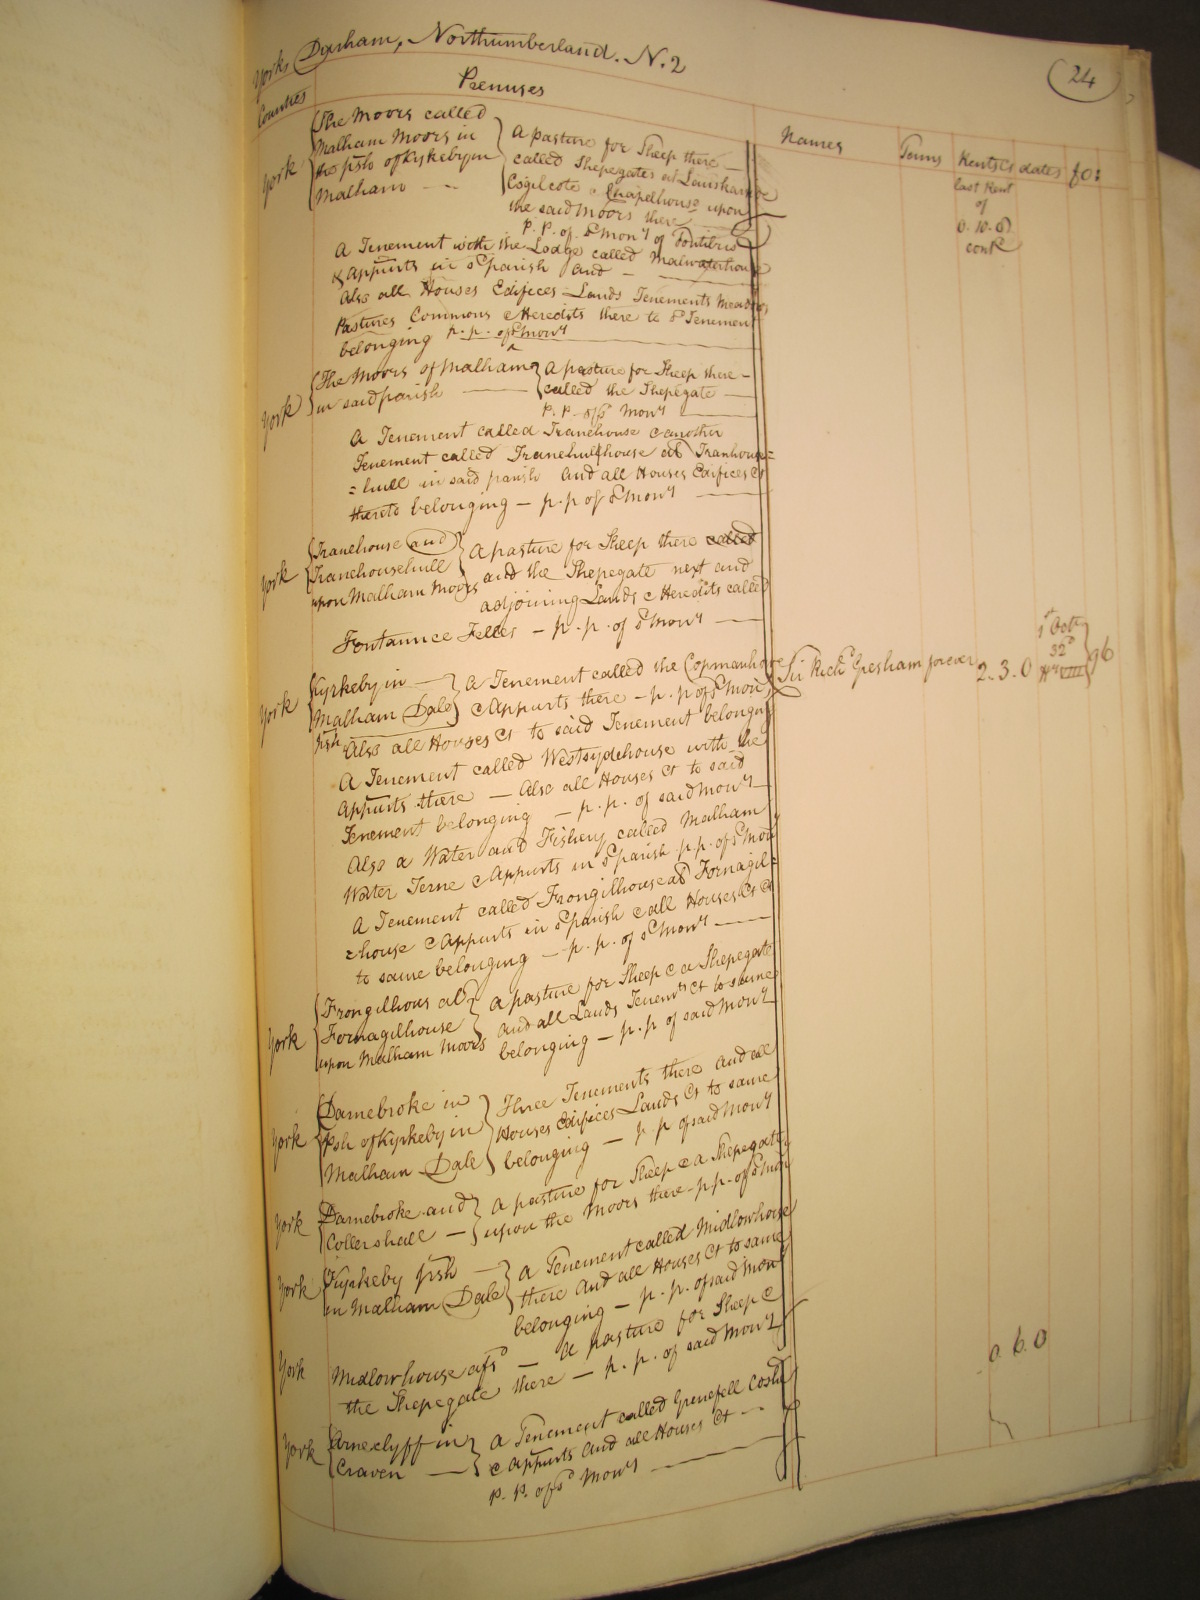 York, Durham, Northumberland. N.2
24
Counties
Premises
Names
Terms
Rents &c
dates
fo:
last Rent
of
0.10.0
cont
York
The Moors called
Malham Moors in
the psh of Kyrkebyin
Malham
A pasture for Sheep there
called Shepegates at Lonshame
Cogilcote & Chapelhouse upon
the said Moors there
P. P. of sd Mony of Fontibus
A Tenement with the Lodge called Malwaterhouse
& Appurts in sd parish and
Also all Houses Edifices Lands Tenements Meadows
Pastures Commons & Heredits there to sd Tenement
belonging p. p. of sd Mony
York
The Moors of Malham
in said parish
A pasture for Sheep there
called the Shepegate
P. P. of sd Mony
A Tenement called Tranehouse & another
Tenement called Tranehullhouse als Tranhouse=
=hull in said parish And all Houses Edifices &c
thereto belonging — p. p of sd Mony
York
Tranehouse and
Tranehousehull
upon Malham Moors
A pasture for Sheep there called
and the Shepegate next and
adjoining Lands & Heredits called
Fontaunce Felles — p. p. of sd Mony
York
Kyrkeby in
Malham Dale
psh
A Tenement called the Copmanhowe
& Appurts there — p. p of sd Mony
Sir Richd Gresham forever
2.3.0
1st Octr
32d
Hy VIII
96
Also all Houses &c to said Tenement belonging
A Tenement called Westsydehouse with the
Appurts there — Also all Houses &c to said
Tenement belonging — p. p. of said Mony
Also a Water and Fishery called Malham
Water Terne & Appurts in sd parish p.p. of sd Mony
A Tenement called Frongilhouse als Fornagil=
=house & Appurts in sd parish & all Houses &c &c
to same belonging — p. p. of sd Mony
York
Frongilhous als
Fornagilhouse
upon Malham Moors
A pasture for Sheep & a Shepegate
and all Lands Tenemts &c to same
belonging — p. p of said Mony
York
Darnebroke in
Psh of Kyrkeby in
Malham Dale
Three Tenements there and all
Houses Edifices Lands &c to same
belonging — p. p of said Mony
York
Darnebroke and
Collershall
A pasture for Sheep & a Shepegate
upon the Moors there - p.p. of sd Mony
York
Kyrkeby psh
in Malham Dale
A Tenement called Midlowhouse
there And all Houses &c to same
belonging — p. p. of said Mony
York
Midlowhouse afsd — A pasture for Sheep &
the Shepegate there — p. p. of said Mony
0.6.0
York
Arneclyff in
Craven
A Tenement called Grenefell Coshe
& Appurts And all Houses &c
P. P. of sd Mony